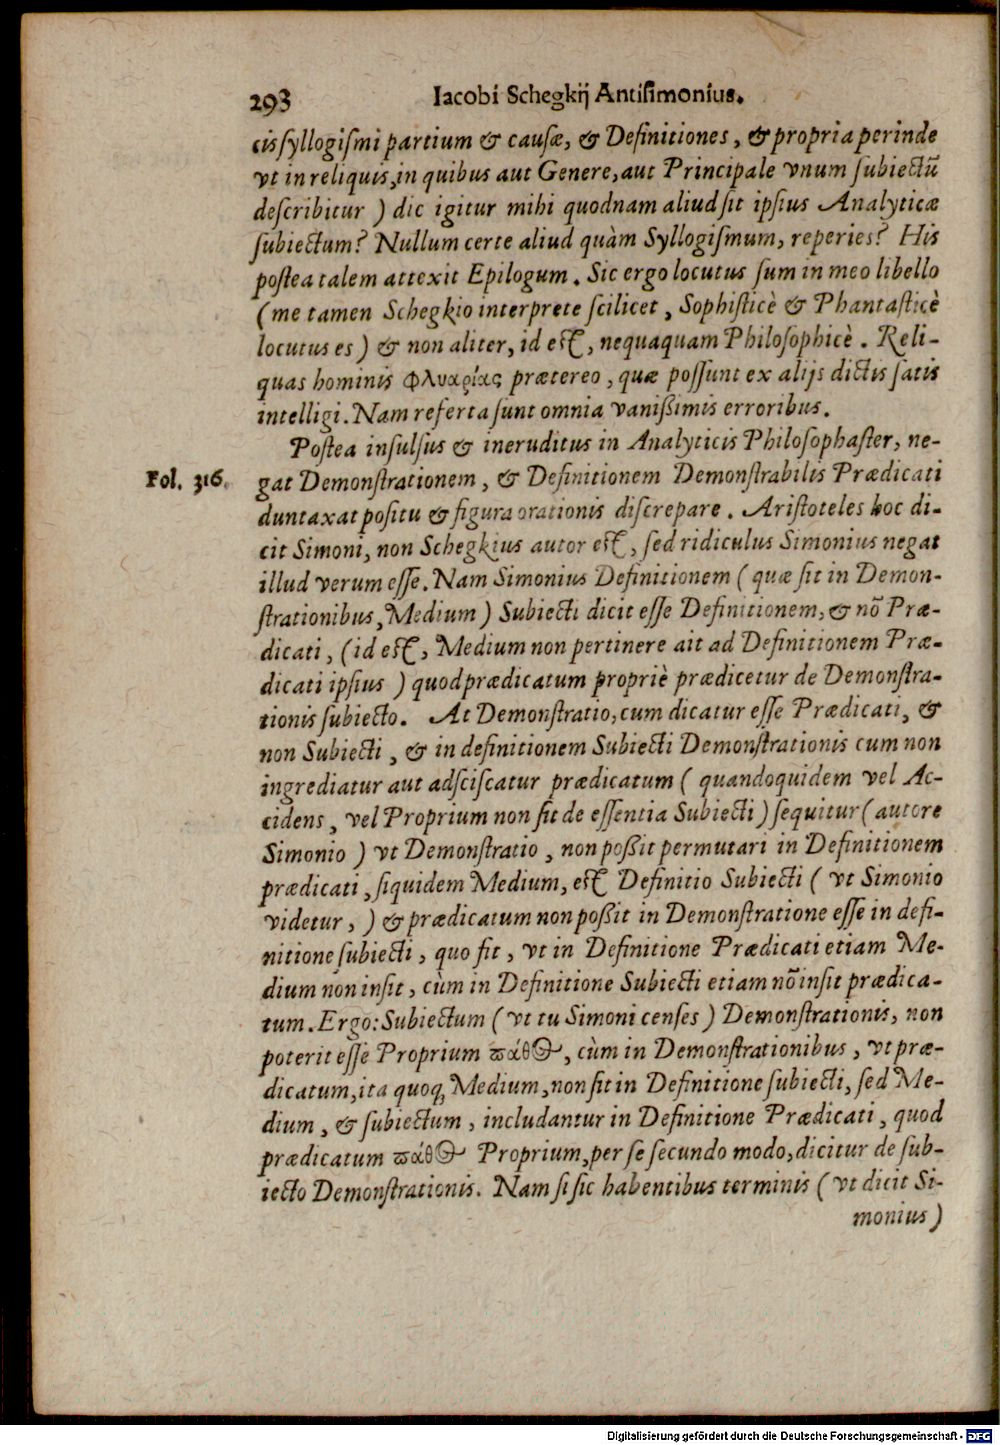 293 Iacobi Schegkij Antisimonius.
cis syllogiſmi partium & cauſæ, & Definitiones, & propria perinde
vt in reliquis, in quibus aut Genere, aut Principale vnum ſubiectū
deſcribitur ) dic igitur mihi quodnam aliud ſit ipſius Analyticæ
ſubiectum? Nullum certe aliud quàm Syllogiſmum, reperies? His
poſtea talem attexit Epilogum. Sic ergo locutus ſum in meo libello
( me tamen Schegkio interprete ſcilicet, Sophiſticè & Phantaſticè
locutus es ) & non aliter, id eſt, nequaquam Philoſophicè. Reli-
quas hominis φλυαρίας prætereo, quæ poſſunt ex alijs dictis ſatis
intelligi. Nam referta ſunt omnia vanißimis erroribus.
Poſtea inſulſus & ineruditus in Analyticis Philoſophaſter, ne-
Fol. 316. gat Demonſtrationem, & Definitionem Demonſtrabilis Prædicati
duntaxat poſitu & figura orationis diſcrepare. Ariſtoteles hoc di-
cit Simoni, non Schegkius autor eſt, ſed ridiculus Simonius negat
illud verum eſſe. Nam Simonius Definitionem ( quæ ſit in Demon-
ſtrationibus, Medium ) Subiecti dicit eſſe Definitionem, & nō Præ-
dicati, ( id eſt, Medium non pertinere ait ad Definitionem Præ-
dicati ipſius ) quod prædicatum propriè prædicetur de Demonſtra-
tionis ſubiecto. At Demonſtratio, cum dicatur eſſe Prædicati, &
non Subiecti, & in definitionem Subiecti Demonſtrationis cum non
ingrediatur aut adſciſcatur prædicatum ( quandoquidem vel Ac-
cidens, vel Proprium non ſit de eſſentia Subiecti ) ſequitur ( autore
Simonio ) vt Demonſtratio, non poßit permutari in Definitionem
prædicati, ſiquidem Medium, eſt Definitio Subiecti ( vt Simonio
videtur, ) & prædicatum non poßit in Demonſtratione eſſe in defi-
nitione ſubiecti, quo fit, vt in Definitione Prædicati etiam Me-
dium non inſit, cùm in Definitione Subiecti etiam nō inſit prædica-
tum. Ergo: Subiectum ( vt tu Simoni cenſes ) Demonſtrationis, non
poterit eſſe Proprium πάθος, cùm in Demonſtrationibus, vt præ-
dicatum, ita quoq; Medium, non ſit in Definitione ſubiecti, ſed Me-
dium, & ſubiectum, includantur in Definitione Prædicati, quod
prædicatum πάθος Proprium, per ſe ſecundo modo, dicitur de ſub-
iecto Demonſtrationis. Nam ſi ſic habentibus terminis ( vt dicit Si-
monius )
Digitalisierung gefördert durch die Deutsche Forschungsgemeinschaft - DFG